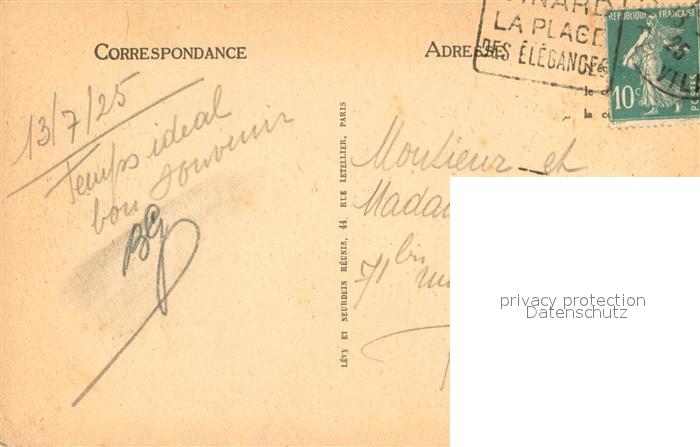 CORRESPONDANCE
ADRESSE
LA PLAGE
DES ÉLÉGANCES
RÉPUBLIQUE FRANÇAISE
10c
25
le c
la co
13/7/25
Temps ideal
bon souvenir
BG
LÉVY ET NEURDEIN RÉUNIS, 44, RUE LETELLIER, PARIS
Monsieur et
Madam
71 bis
privacy protection
Datenschutz